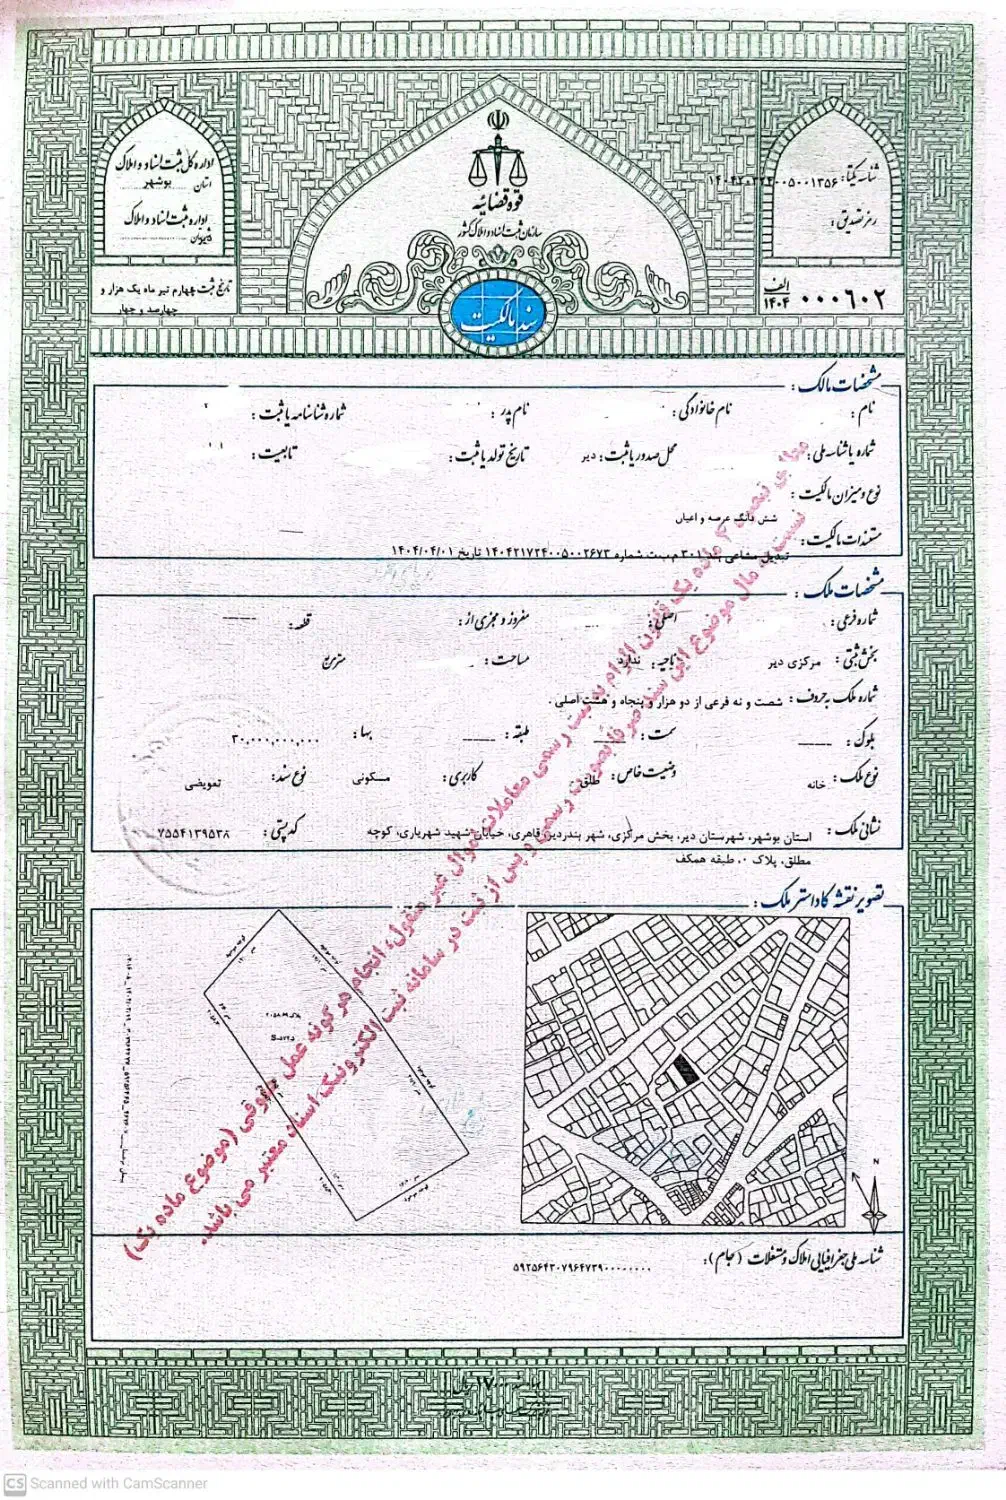 قوه قضائیه
سازمان ثبت اسناد و املاک کشور
سند مالکیت
شناسه یکتا:
رمز تصدیق:
الف
۱۴۰۴
۰۰۰۶۰۲
اداره کل ثبت اسناد و املاک
استان بوشهر
اداره ثبت اسناد و املاک
تاریخ ثبت چهارم تیر ماه یک هزار و
چهارصد و چهار
مشخصات مالک:
نام: نام خانوادگی: نام پدر: شماره شناسنامه یا ثبت:
شماره یا شناسه ملی: محل صدور یا ثبت: دیر تاریخ تولد یا ثبت: تابعیت:
نوع و میزان مالکیت:
شش دانگ عرصه و اعیان
مستندات مالکیت:
تبدیل مشاعی بند ۳۰۱ م.ب.ث شماره ۱۴۰۴۲۱۷۲۴۰۰۵۰۰۲۶۷۳ تاریخ ۱۴۰۴/۰۴/۰۱
مشخصات ملک:
شماره فرعی: اصلی: مفروز و مجزی از: قطعه:
بخش ثبتی: مرکزی دیر ناحیه: ندارد مساحت: مترمربع
شماره ملک به حروف: شصت و نه فرعی از دو هزار و پنجاه و هشت اصلی.
بلوک: سمت: طبقه: بها: ۳۰,۰۰۰,۰۰۰,۰۰۰
نوع ملک: خانه وضعیت خاص: طلق کاربری: مسکونی نوع سند: تعویضی
نشانی ملک: استان بوشهر، شهرستان دیر، بخش مرکزی، شهر بندردیر، قاهری، خیابان شهید شهریاری، کوچه
مطلق، پلاک ۰، طبقه همکف
کدپستی: ۷۵۵۴۱۳۹۵۳۸
تصویر نقشه کاداستر ملک:
N
شناسه ملی جغرافیایی املاک و مستغلات (جام): ۵۹۲۵۶۴۳۰۷۹۶۴۷۳۹۰۰۰۰۰۰۰۰
ماده یک قانون الزام به ثبت رسمی معاملات اموال غیر منقول، انجام هرگونه عمل حقوقی (موضوع ماده یک)
نسبت به مال موضوع این سند صرفا بصورت رسمی و پس از ثبت در سامانه ثبت الکترونیک اسناد معتبر می باشد.
CS Scanned with CamScanner